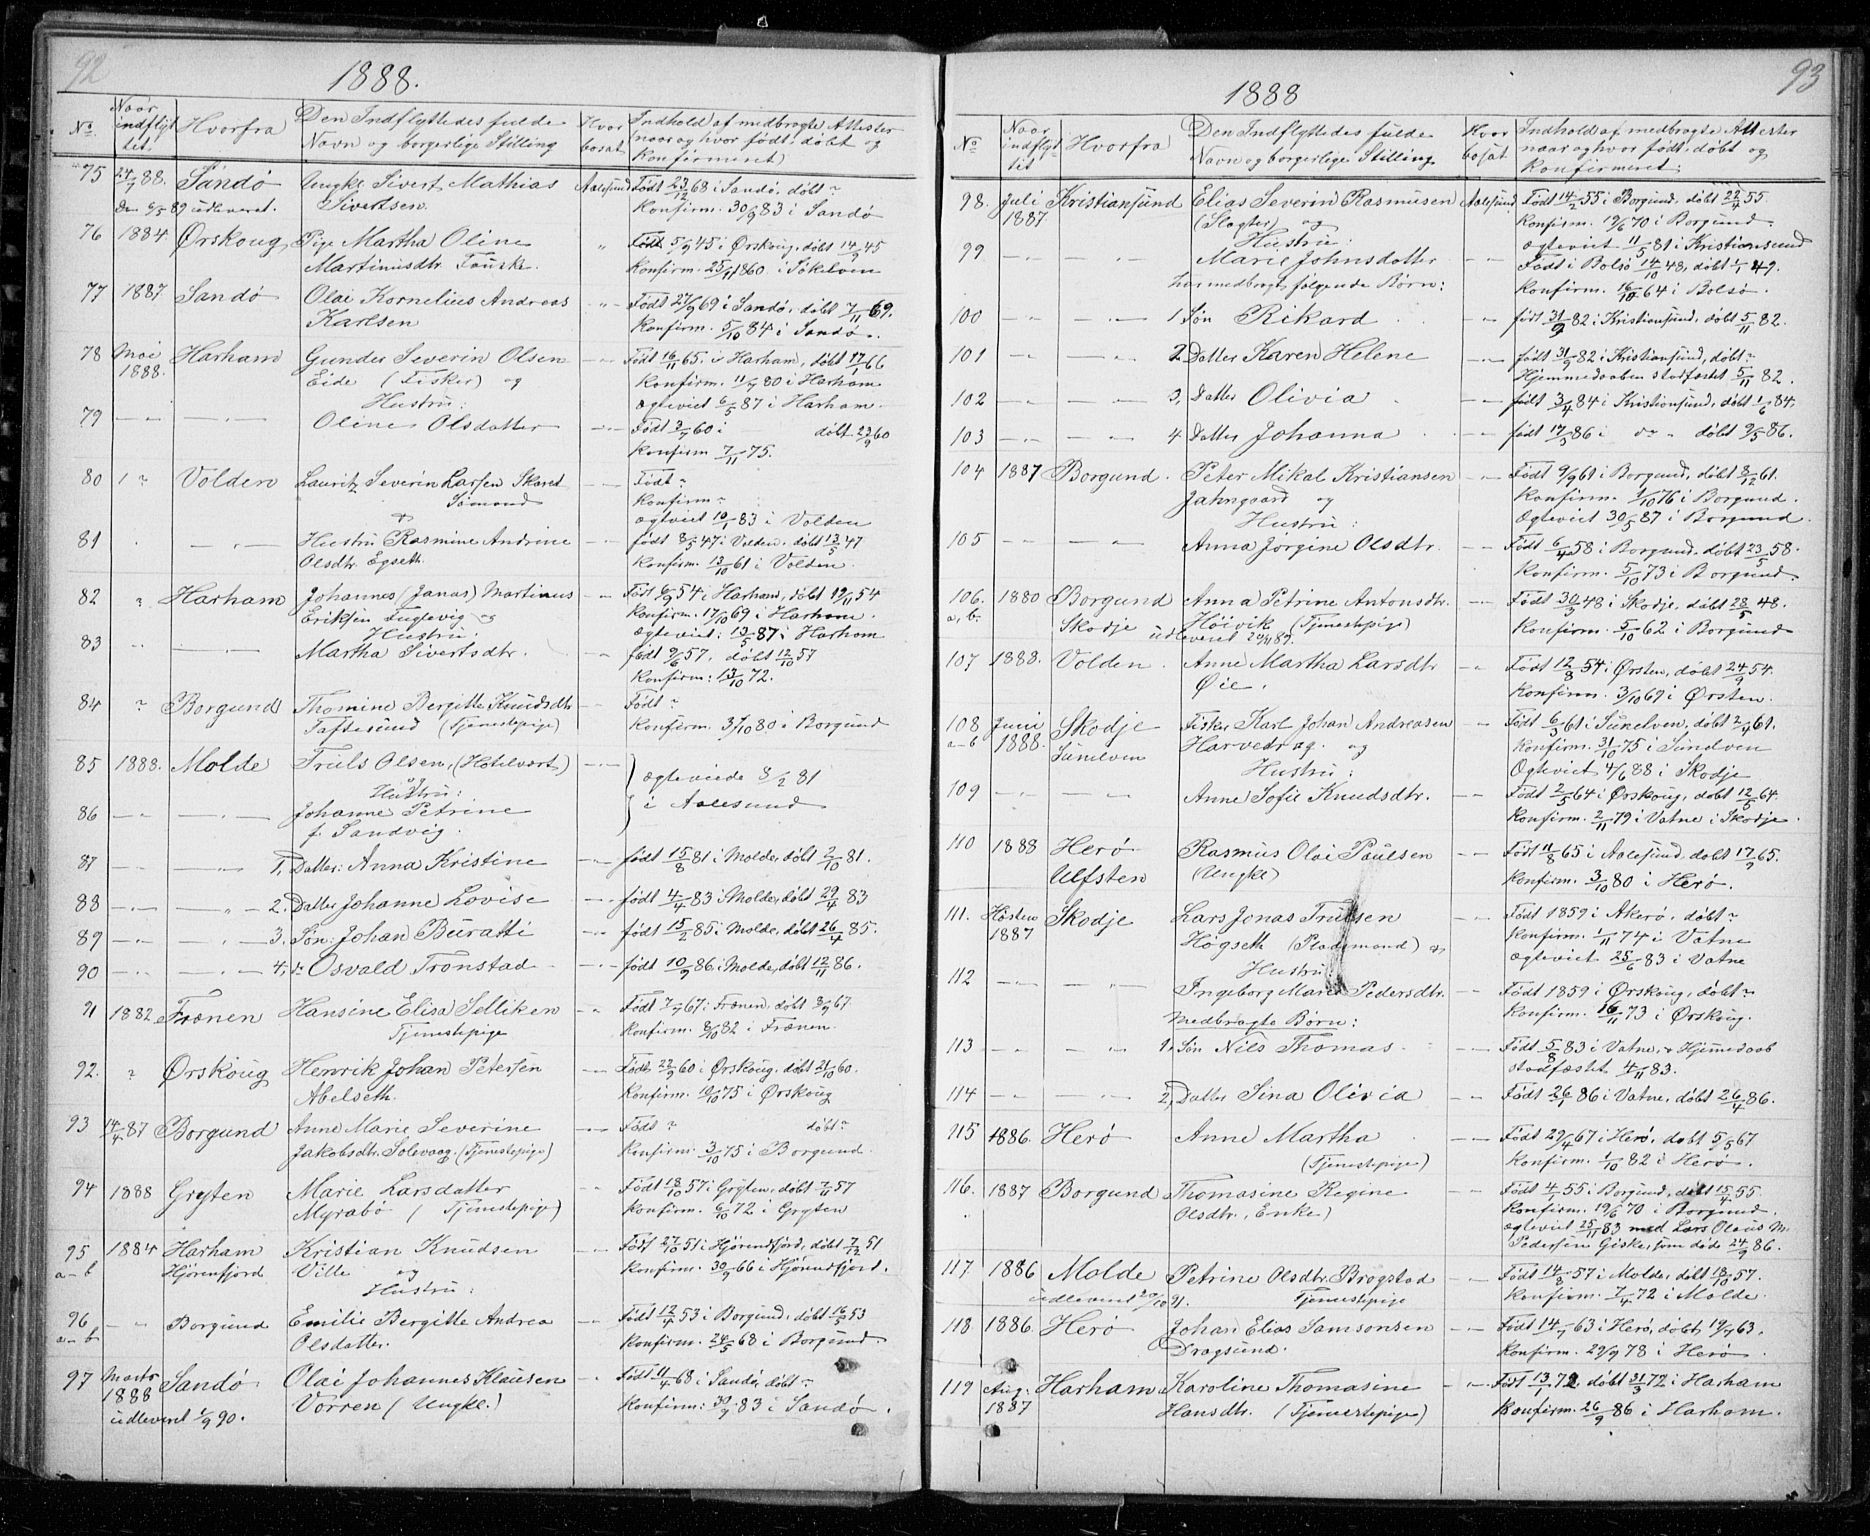 92
1888.
No. Naar indflyttet. Hvorfra Den Indflyttedes fulde Navn og borgerlige Stilling Hvor bosat Indhold af medbragte Attester naar og hvor født, døbt og Konfirmeret)
75 24/7 88. Sandø Ungk. Sivert Mathias Aalesund Født 23/12 68 i Sandø, døbt "
Den 6/5 89 udleveret. Sivertsen. Konfirm. 30/9 83 i Sandø
76 1884 Ørskoug Pige Martha Oline " Født 5/9 45 i Ørskoug, døbt 14/9 45
Martinusdtr. Fauske. Konfirm. 25/11 1860 i Søkelven
77 1887 Sandø Olai Kornelius Andreas " Født 27/9 69 i Sandø, døbt 7/11 69.
Karlsen Konfirm. 5/10 84 i Sandø.
78 Mai Harham Gunder Severin Olsen - Født 16/11 65 i Harham, døbt 17/1 66
1888. Eide (Fisker) og Konfirm. 11/7 80 i Harham
Hustru: Ægteviet 6/5 87 i Harham.
79 - - Oline Olsdatter - Født 3/7 60 i døbt 23/9 60
Konfirm 7/11 75.
80 1 " Volden Laurits Severin Larsen Skaret - Født "
Sømand Konfirm "
& Ægteviet 10/1 83 i Volden
81 - Hustru Rasmine Andrine - født 8/5 47 i Volden, døbt 13/5 47
Olsdtr. Egseth. Konfirm. 13/10 61 i Volden.
82 " Harham Johannes (Janas) Martinus - Født 6/9 54 i Harham, døbt 19/11 54
Eriksen Fuglevig og Konfirm. 17/10 69 i Harham.
Hustru: Ægteviet: 13/5 87 i Harham
83 - - Martha Sivertsdtr. - født 9/6 57. døbt 12/10 57
Konfirm: 13/10 72.
84 " Borgund Thomine Bergitte Knudsdtr - Født "
Taftesund (Tjenestepige) Konfirm. 3/10 80 i Borgund
85 1888. Molde Truls Olsen, (Hotelvært) - Ægteviede 3/2 81
og Hustru: i Aalesund
86 - - Johanne Petrine
f. Sandvig.
87 - - 1, Datter: Anna Kristine - født 15/8 81 i Molde, døbt 2/10 81.
88 - - 2. Datter Johanne Lovise - født 4/4 83 i Molde, døbt 29/4 83
89 - - 3. Søn: Johan Buratti - født 15/2 85 i Molde, døbt 26/4 85.
90 - - 4, do Osvald Tronstad - født 10/9 86 i Molde, døbt 12/11 86.
91 1882 Frænen Hansine Elisa Selliken - Født 7/7 67 i Frænen, døbt 8/9 67
Tjenestepige Konfirm. 8/10 82 i Frænen.
92. " Ørskoug Henrik Johan Petersen - Født 22/9 60 i Ørskoug, døbt 21/10 60.
Abelseth. Konfirm. 10/10 75 i Ørskoug
93 14/4 87 Borgund Anne Marie Severine - Født " døbt "
Jakobsdtr. Solevaag (Tjenestepige) Konfirm. 3/10 75 i Borgund.
94 1888 Grytten Marie Larsdatter - Født 18/10 57 i Grytten, døbt 7/11 57
Myrabø (Tjenestepige) Konfirm. 6/10 72 i Grytten
95 1884 Harham Kristian Knudsen - Født 27/10 51 i Hjørendfjord, døbt 7/12 51
a-b Hjørenfjord Ville og Konfirm. 30/9 66 i Hjørundfjord.
Hustru:
96 - Borgund Emilie Bergitte Andrea - Født 12/4 53 i Borgund, døbt 16/5 53
a-b Olsdatter. Konfirm. 24/5 68 i Borgund
97 Marts Sandø Olai Johannes Klausen - Født 11/4 68 i Sandø, døbt "
1888 Vorren (Ungk.) Konfirm: 30/9 83 i Sandø.
udleveret 1/9 90.
93
1888
No Naar indflyttet Hvorfra Den Indflyttedes fulde Navn og borgerlige Stilling Hvor bosat Indhold af medbragte Attester naar og hvor født, døbt og Konfirmeret.
98. Juli Kristiansund Elias Severin Rasmusen Aalesund Født 14/2 55 i Borgund, døbt 22/4 55.
1887 (Slagter) og Konfirm. 19/6 70 i Borgund.
Hustru: Ægteviet 11/5 81 i Kristiansund
99 - - Marie Johnsdatter Født i Bolsø 14/10 48, døbt 1/1 49.
har medbragt følgende Børn: Konfirm. 16/10 64 i Bolsø.
100 - - 1 Søn Rikard - født 31/9 82 i Kristiansund, døbt 5/11 82.
101 - - 2 Datter Karen Helene - født 31/9 82 i Kristiansund, døbt "
Hjemmedaaben stadfæstet 5/11 82.
102 - - 3, Datter Olivia - født 3/4 84 i Kristiansund, døbt 1/6 84,
103 - - 4 Datter Johanna - født 17/3 86 i do døbt 9/5 86.
104 1887 Borgund. Peter Mikal Kristiansen - Født 9/9 61 i Borgund, døbt 8/12 61.
Jahngaard og Konfirm. 1/10 76 i Borgund.
Hustru: Ægteviet 30/5 87 i Borgund.
105 - - Anna Jørgine Olsdtr. - Født 6/4 58 i Borgund, døbt 23/5 58.
Konfirm. 5/10 73 i Borgund.
106. 1880 Borgund Anna Petrine Antonsdtr. - Født 30/3 48 i Skodje, døbt 28/5 48.
a, b. Skodje Høivik (Tjenestepige) Konfirm. 5/10 62 i Borgund
udleveret 29/11 89.
107 1888. Volden. Anne Martha Larsdtr - Født 12/8 54 i Ørsten, døbt 24/9 54.
Øie. Konfirm. 3/10 69 i Ørsten.
108 Juni Skodje Fisker Karl Johan Andreasen - Født 6/3 61 i Sunelven, døbt 2/4 61.
a-b 1888. Sunelven Harvedrag. og Konfirm. 31/10 75 i Sundven
Hustru: Ægteviet 4/6 88 i Skodje
109 - - Anne Sofie Knudsdtr. - Født 2/5 64 i Ørskoug, døbt 12/6 64.
Konfirm. 2/11 79 i Vatne i Skodje.
110 1888 Herø Rasmus Olai Paulsen - Født 11/8 65 i Aalesund, døbt 17/9 65.
Ulfsten (Ungk.) Konfirm. 3/10 80 i Herø.
111. Høsten Skodje Lars Jonas Trulsen Født 1859 i Akerø, døbt "
1887 Høgseth (Pladsmand) & Konfirm. 1/11 74 i Vatne
Hustru: Ægteviet 25/6 83 i Vatne
112 - - Ingeborg Marie Pedersdtr. - Født 1859 i Ørskoug, døbt "
Medbragte Børn: Konfirm. 16/11 73 i Ørskoug.
113 - - 1, Søn Nils Thomas - Født 5/8 83 i Vatne, & Hjemmedaab
stadfæstet 4/11 83.
114 - - 2, Datter Sina Olivia - Født 26/1 86 i Vatne, døbt 26/4 86.
115 1886. Herø Anne Martha - Født 29/4 67 i Herø, døbt 5/5 67
(Tjenestepige) Konfirm. 1/10 82 i Herø.
116. 1887 Borgund Thomasine Regine - Født 4/1 55 i Borgund, døbt 15/4 55.
Olsdtr, Enke) Konfirm. 19/6 70 i Borgund.
Ægteviet 25/11 83 med Lars Olaus M.
Pedersen Giske, som døde 24/9 86.
117. 1886 Molde Petrine Olsdtr. Brogstad - Født 14/8 57 i Molde, døbt 18/10 57.
udleveret 20/10 91. Tjenestepige Konfirm. 7/4 72 i Molde.
118. 1886. Herø Johan Elias Samsonsen - Født 14/7 63 i Herø, døbt 19/7 63.
Dragsund. Konfirm. 29/9 78 i Herø
119 Aug. Harham Karoline Thomasine - Født 13/1 72 døbt 31/3 72 i Harham
1887 Hansdtr. (Tjenestepige) Konfirm. 26/9 86 i Harham.